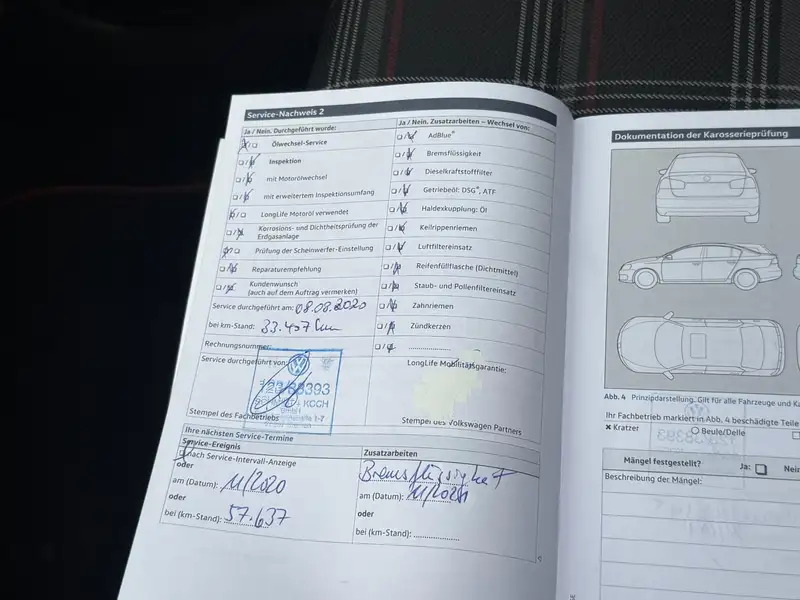 Service-Nachweis 2
Ja / Nein. Durchgeführt wurde:
Ölwechsel-Service
Inspektion
mit Motorölwechsel
mit erweitertem Inspektionsumfang
LongLife Motoröl verwendet
Korrosions- und Dichtheitsprüfung der
Erdgasanlage
Prüfung der Scheinwerfer-Einstellung
Reparaturempfehlung
Kundenwunsch
(auch auf dem Auftrag vermerken)
Service durchgeführt am: 08.08.2020
bei km-Stand: 33.457 km
Rechnungsnummer:
Service durchgeführt von:
38393
KOCH
GmbH
Stempel des Fachbetriebs
Ja / Nein. Zusatzarbeiten – Wechsel von:
AdBlue®
Bremsflüssigkeit
Dieselkraftstofffilter
Getriebeöl: DSG®, ATF
Haldexkupplung: Öl
Keilrippenriemen
Luftfiltereinsatz
Reifenfüllflasche (Dichtmittel)
Staub- und Pollenfiltereinsatz
Zahnriemen
Zündkerzen
LongLife Mobilitätsgarantie:
Stempel des Volkswagen Partners
Ihre nächsten Service-Termine
Service-Ereignis
nach Service-Intervall-Anzeige
oder
am (Datum): 11/2020
oder
bei (km-Stand): 57.637
Zusatzarbeiten
Bremsflüssigkeit
am (Datum):
oder
bei (km-Stand):
Dokumentation der Karosserieprüfung
Abb. 4 Prinzipdarstellung. Gilt für alle Fahrzeuge und
Ihr Fachbetrieb markiert in Abb. 4 beschädigte Teile
× Kratzer
○ Beule/Delle
Mängel festgestellt? Ja:
Beschreibung der Mängel: